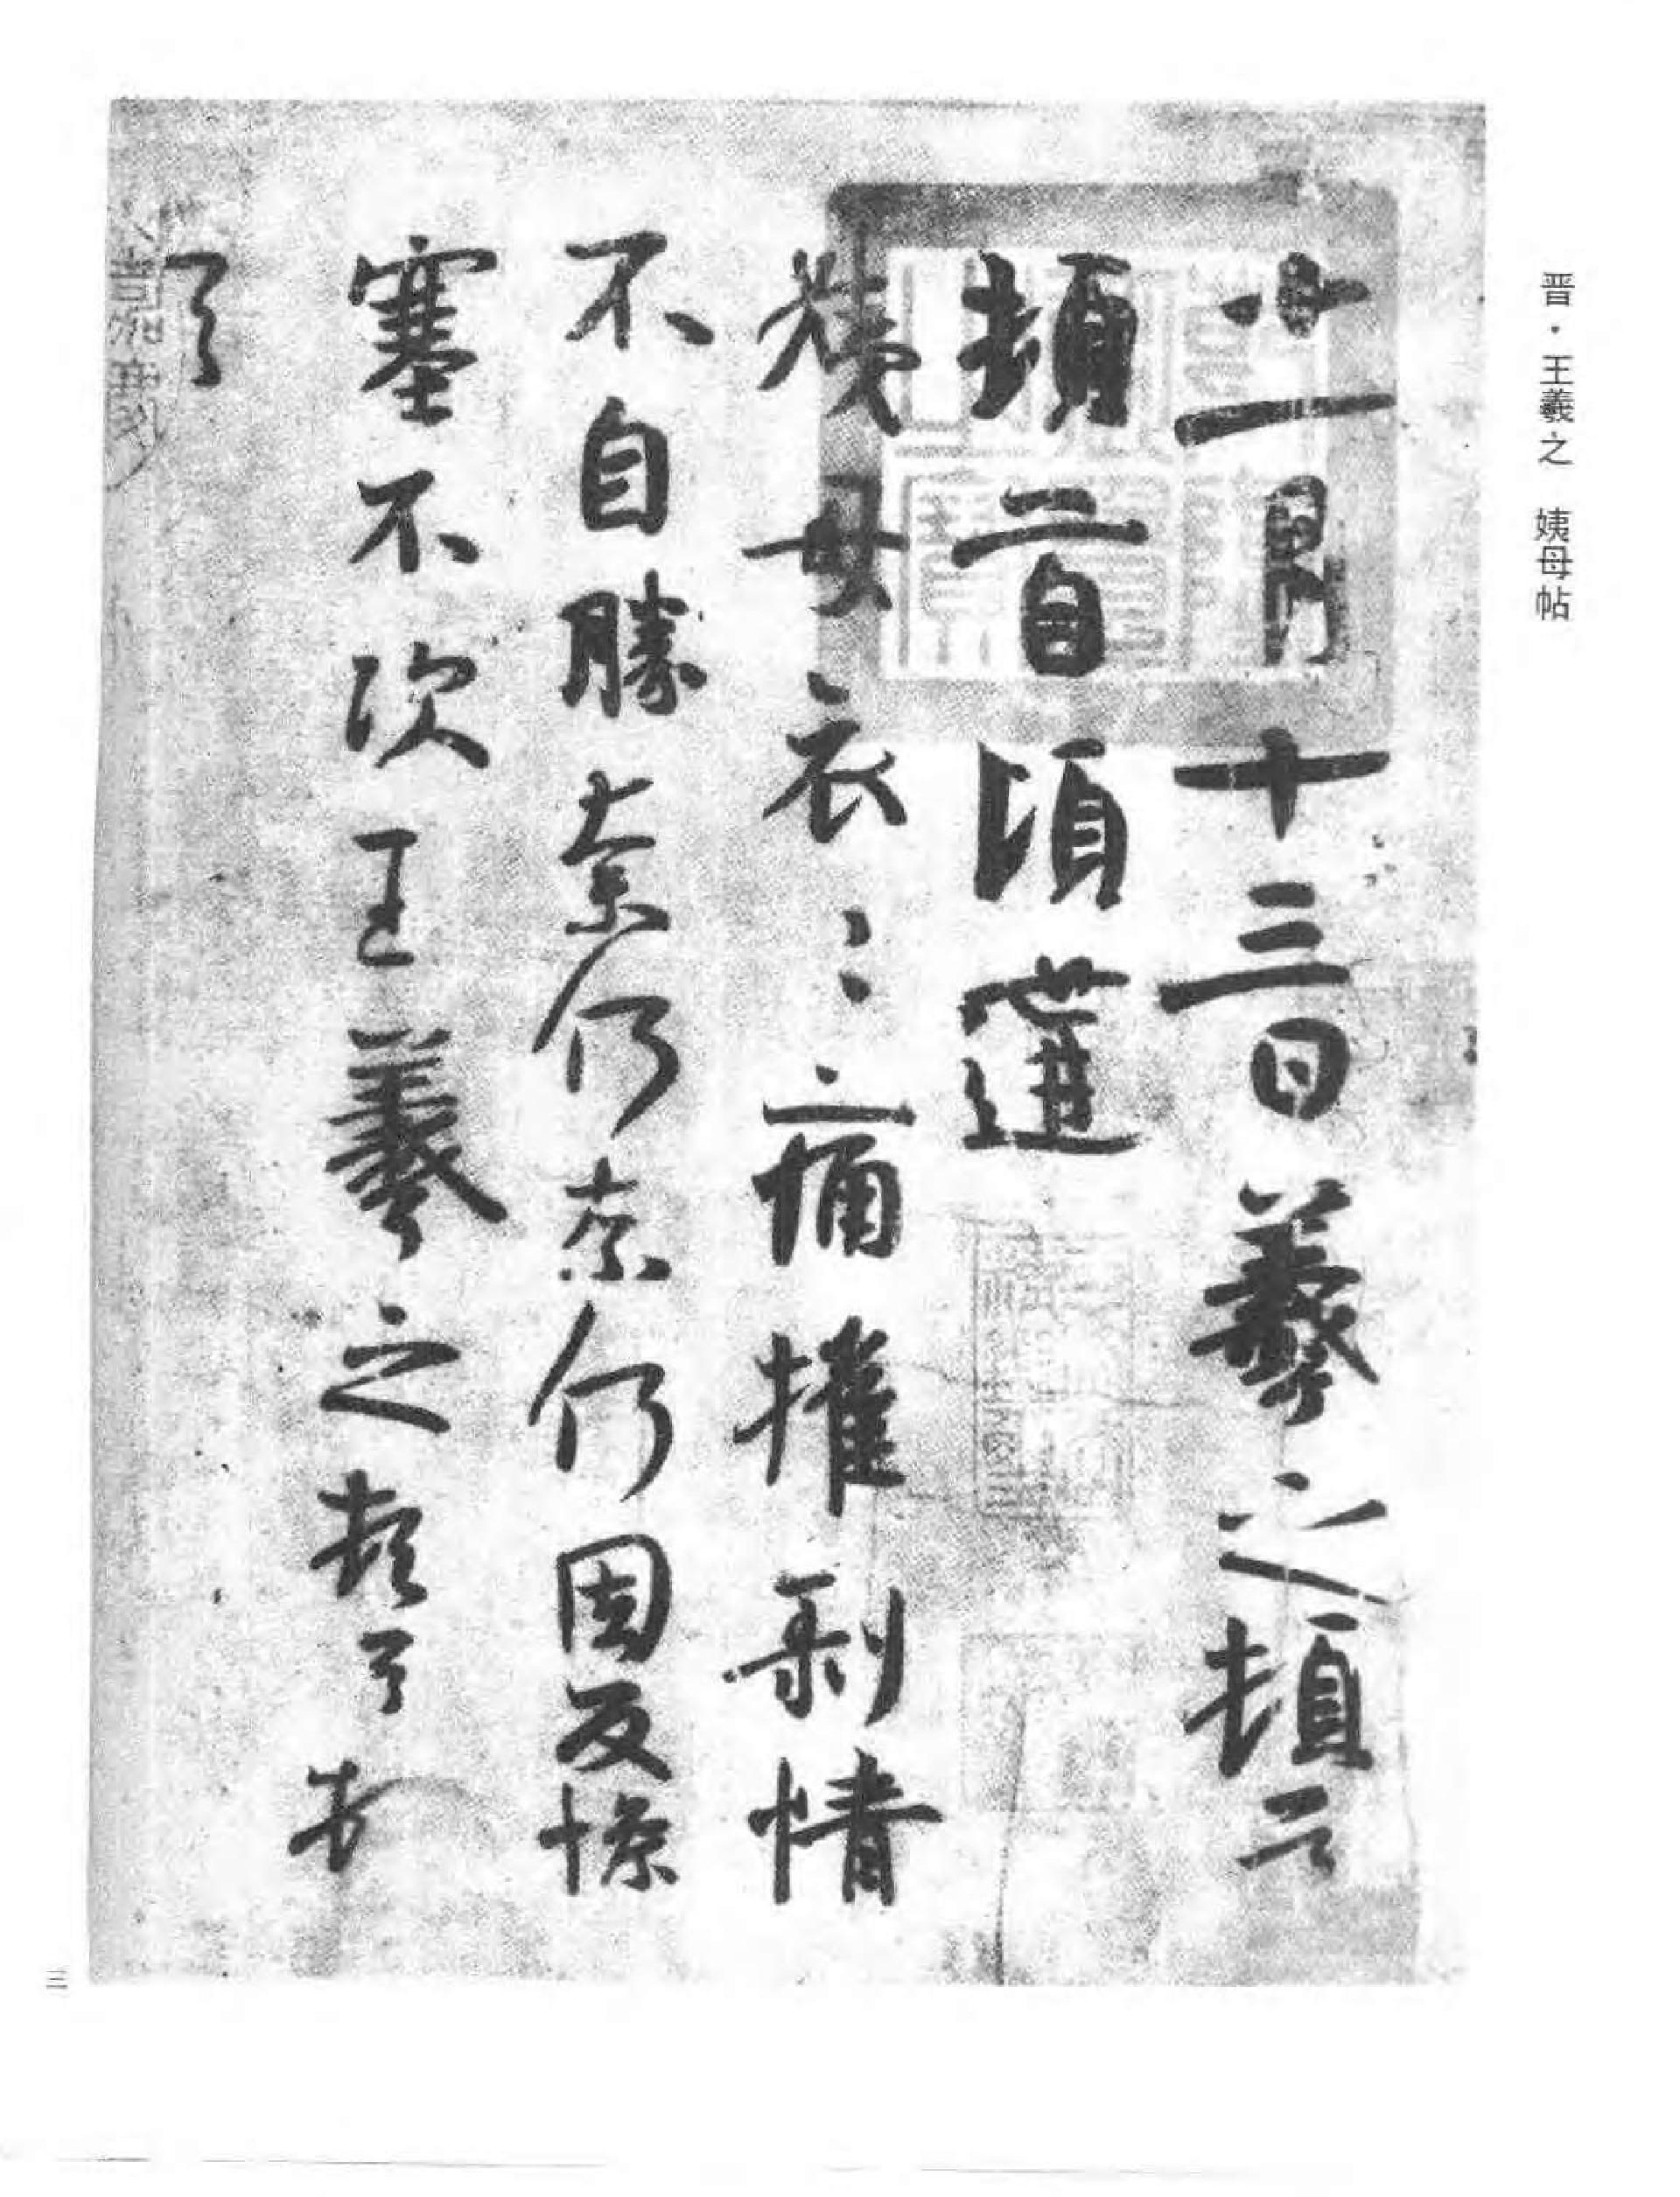 晋·王羲之 姨母帖
十一月十三日羲之頓首
頓首頃遘
姨母哀〻痛摧剥情
不自勝奈何奈何因反慘
塞不次王羲之頓首頓
首
三